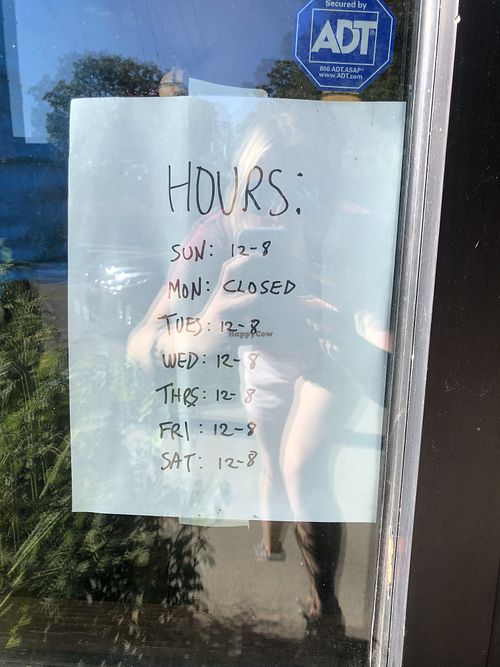 Secured by
ADT
800.ADT.ASAP
www.ADT.com
HOURS:
SUN: 12-8
MON: CLOSED
TUES: 12-8
HappyCow
WED: 12-8
THRS: 12-8
FRI: 12-8
SAT: 12-8